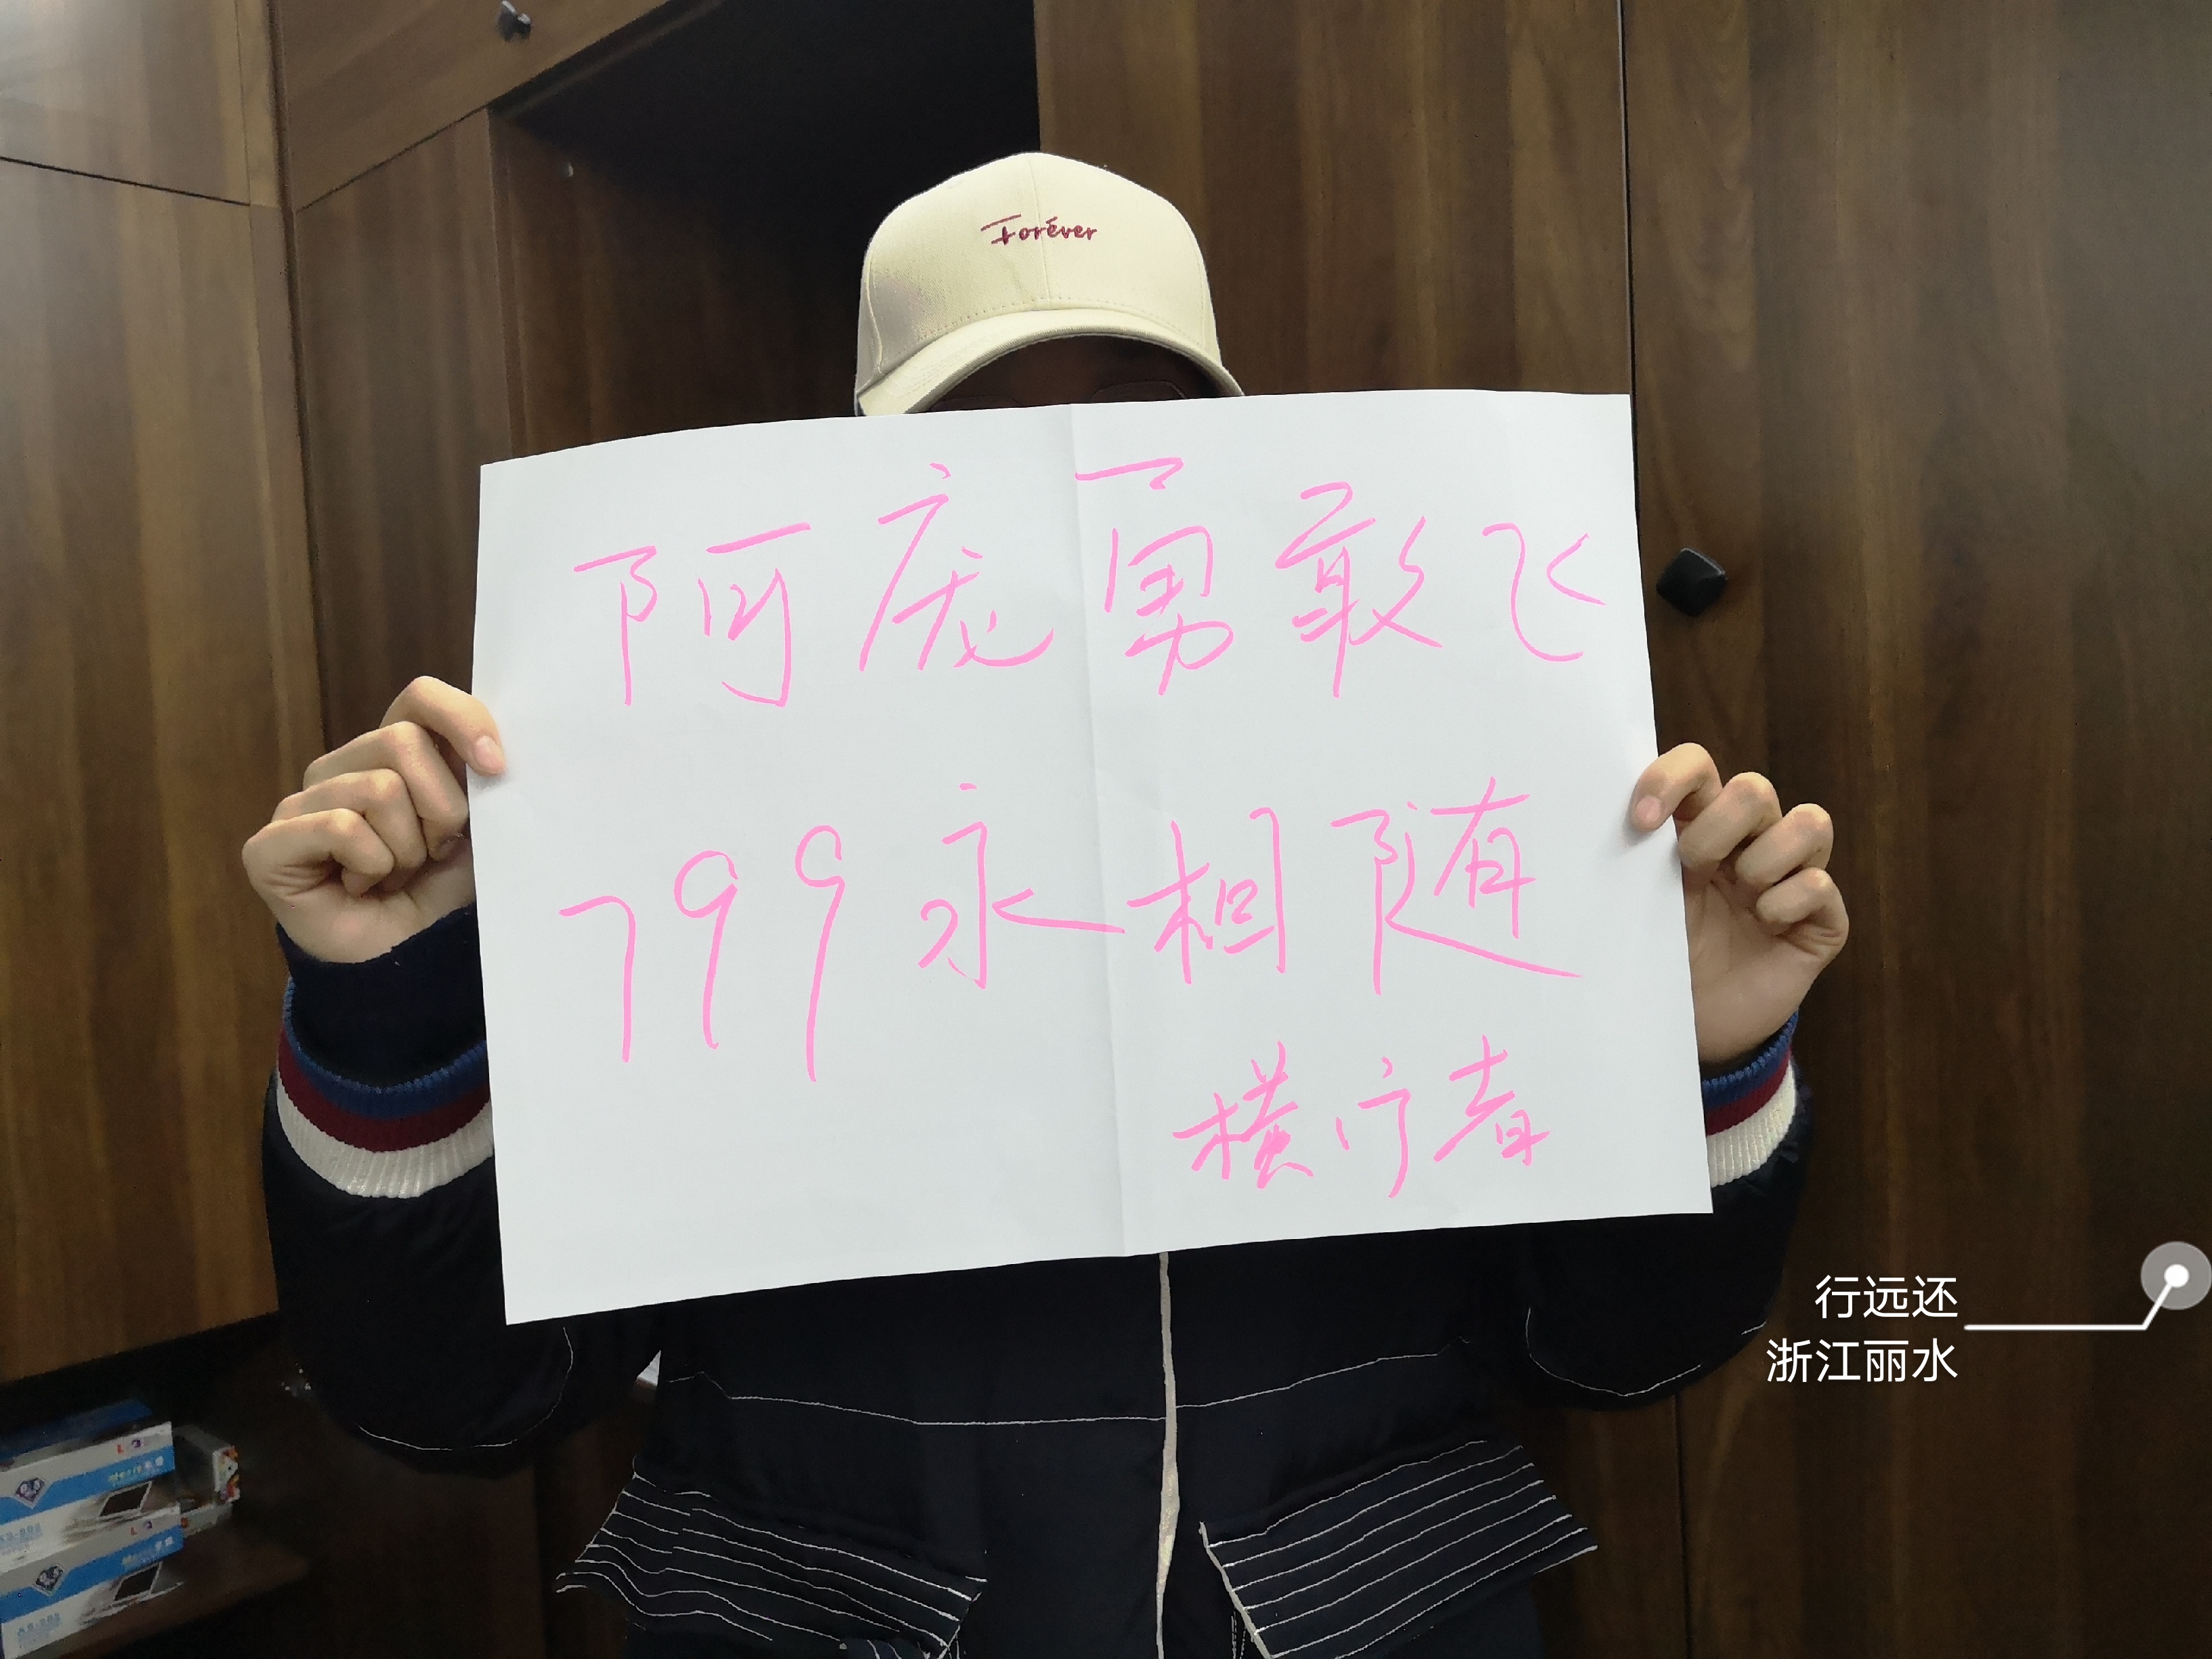 Forever
阿庞勇敢飞
799永相随
横疗者
行远还
浙江丽水